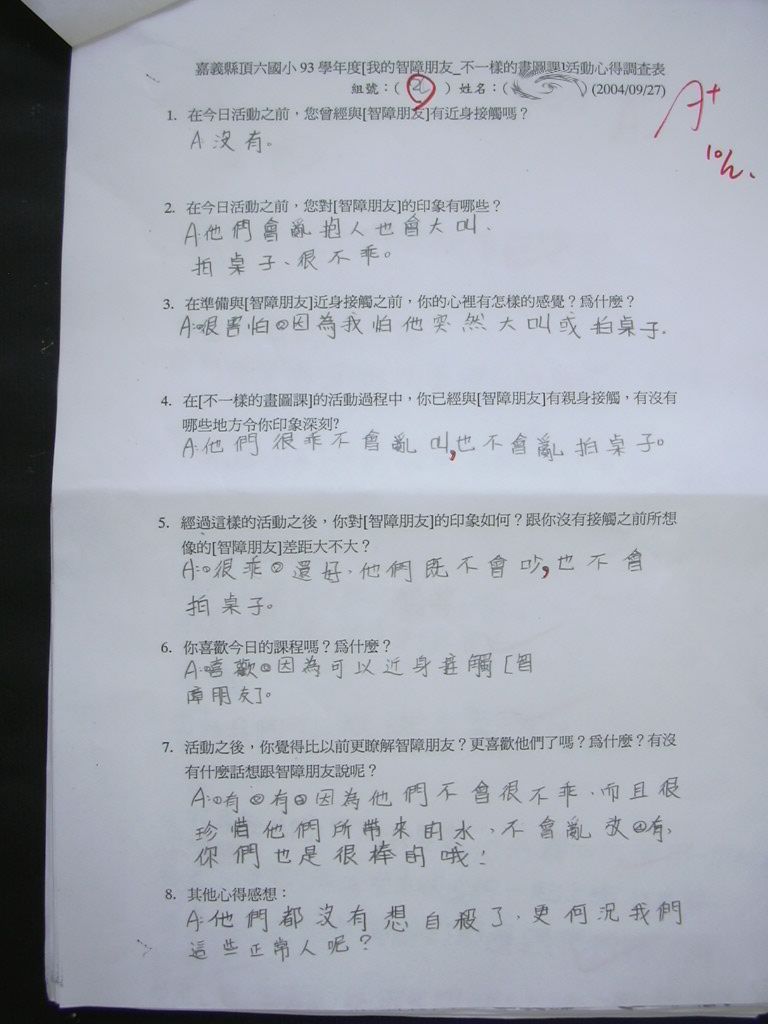 嘉義縣頂六國小93學年度[我的智障朋友_不一樣的畫圖課]活動心得調查表
組號：( 2 ) 姓名：( ) (2004/09/27)
A+
10/2.
1. 在今日活動之前，您曾經與[智障朋友]有近身接觸嗎？
A:沒有。
2. 在今日活動之前，您對[智障朋友]的印象有哪些？
A:他們會亂抱人也會大叫、
拍桌子、很不乖。
3. 在準備與[智障朋友]近身接觸之前，你的心裡有怎樣的感覺？為什麼？
A:①很害怕②因為我怕他突然大叫或拍桌子.
4. 在[不一樣的畫圖課]的活動過程中，你已經與[智障朋友]有親身接觸，有沒有
哪些地方令你印象深刻?
A:他們很乖不會亂叫,也不會亂拍桌子。
5. 經過這樣的活動之後，你對[智障朋友]的印象如何？跟你沒有接觸之前所想
像的[智障朋友]差距大不大？
A:①很乖②還好、他們既不會吵,也不會
拍桌子。
6. 你喜歡今日的課程嗎？為什麼？
A:①喜歡②因為可以近身接觸[智
障朋友]。
7. 活動之後，你覺得比以前更瞭解智障朋友？更喜歡他們了嗎？為什麼？有沒
有什麼話想跟智障朋友說呢？
A:①有②有③因為他們不會很不乖、而且很
珍惜他們所帶來的水、不會亂放④有,
你們也是很棒的哦！
8. 其他心得感想：
A:他們都沒有想自殺了、更何況我們
這些正常人呢？